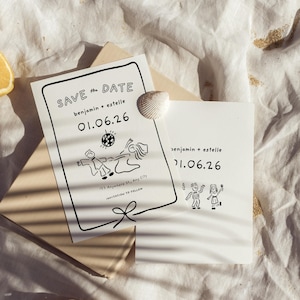 SAVE the DATE
benjamin + estelle
01.06.26
INVITATION TO FOLLOW
+ estelle
01.06.26